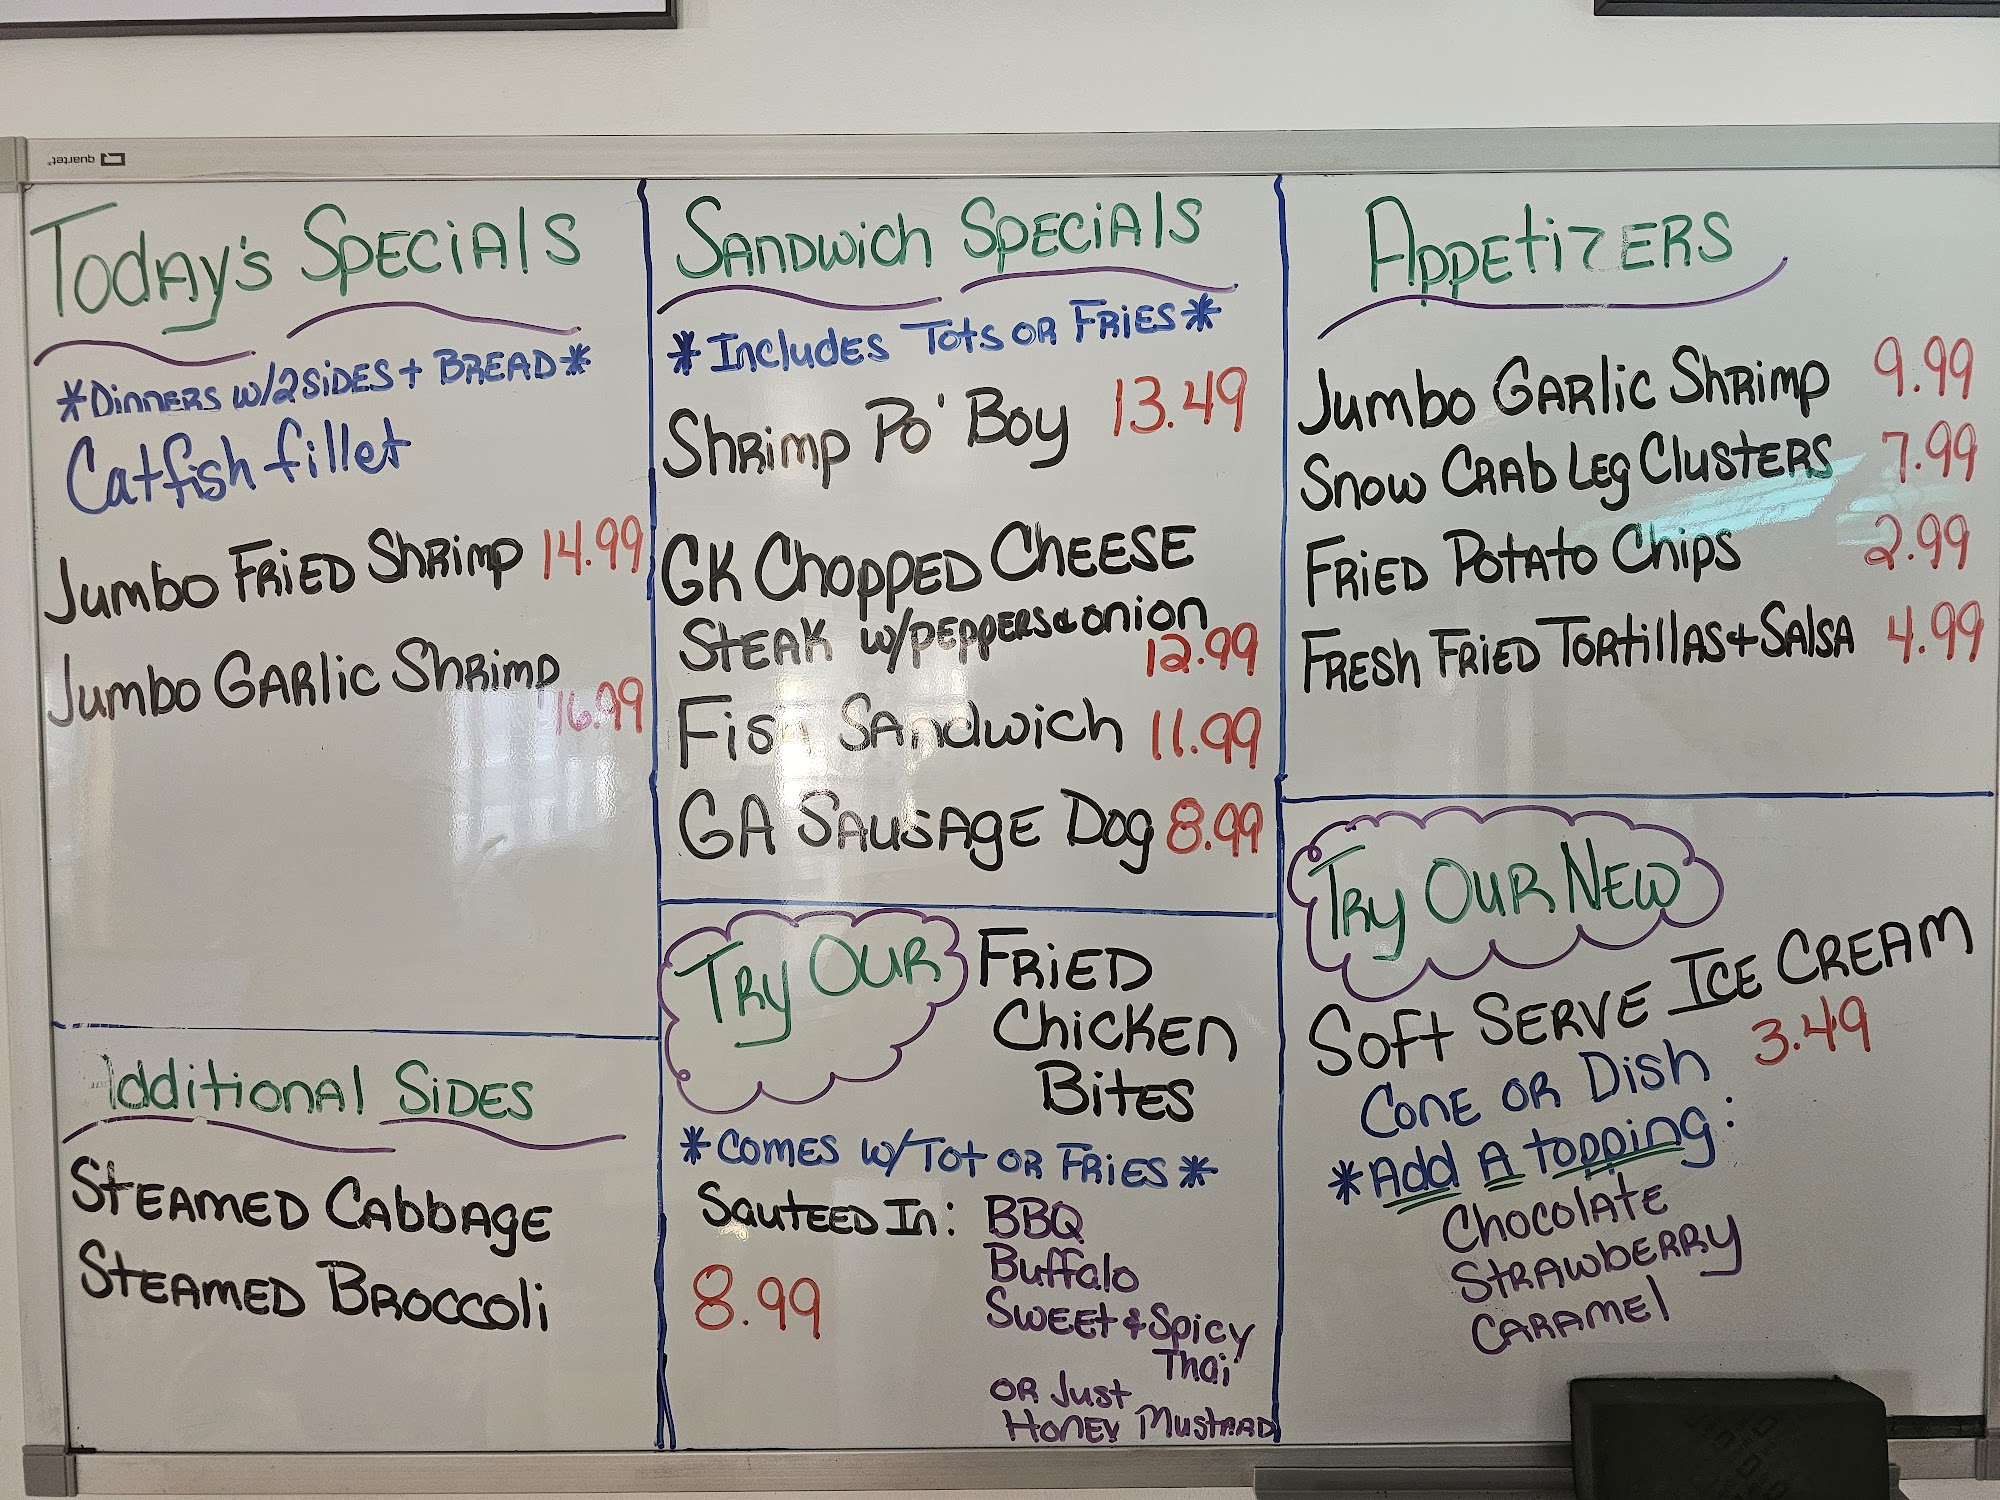 quartet
Today's Specials
*Dinners w/2 sides + Bread*
Catfish fillet
Jumbo Fried Shrimp 14.99
Jumbo Garlic Shrimp
16.99
Additional Sides
Steamed Cabbage
Steamed Broccoli
Sandwich Specials
*Includes Tots or Fries*
Shrimp Po' Boy 13.49
GK Chopped Cheese
Steak w/peppers & onion
12.99
Fish Sandwich 11.99
GA Sausage Dog 8.99
Try Our Fried
Chicken
Bites
*Comes w/Tot or Fries*
Sauteed In: BBQ
Buffalo
8.99
Sweet & Spicy
Thai
or Just
Honey Mustard
Appetizers
Jumbo Garlic Shrimp 9.99
Snow Crab Leg Clusters 7.99
Fried Potato Chips 2.99
Fresh Fried Tortillas + Salsa 4.99
Try Our New
Soft Serve Ice Cream
3.49
Cone or Dish
*Add A topping:
Chocolate
Strawberry
Caramel